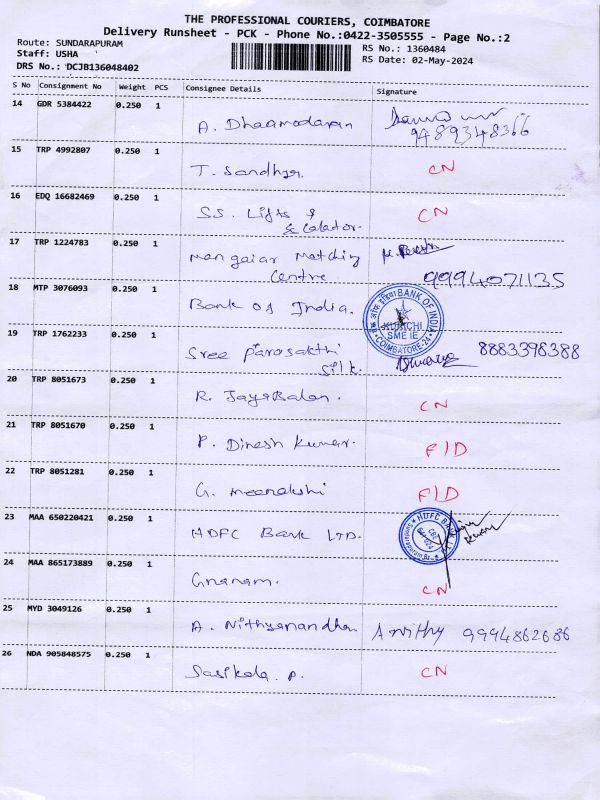 THE PROFESSIONAL COURIERS, COIMBATORE
Delivery Runsheet - PCK - Phone No.:0422-3505555 - Page No.:2
Route: SUNDARAPURAM
Staff: USHA
DRS No.: DCJB136048402
RS No.: 1360484
RS Date: 02-May-2024
S No Consignment No Weight PCS Consignee Details Signature
14 GDR 5384422 0.250 1
A. Dhaamodaran
9489348366
15 TRP 4992807 0.250 1
T. Sandhya. CN
16 EDQ 16682469 0.250 1
SS. Lifts & CN
Escalator.
17 TRP 1224783 0.250 1
Mangaiar Matching
Centre 9994071135
18 MTP 3076093 0.250 1
Bank of India.
BANK OF INDIA
KURICHI
SME IE
COIMBATORE-24
19 TRP 1762233 0.250 1
Sree Parasakthi 8883398388
Silk.
20 TRP 8051673 0.250 1
R. JayaBalan. CN
21 TRP 8051670 0.250 1
P. Dinesh Kumar. F/D
22 TRP 8051281 0.250 1
G. Meenakshi F/D
23 MAA 650220421 0.250 1
HDFC Bank LTD.
HDFC BANK LTD
24 MAA 865173889 0.250 1
Gnanam. CN
25 MYD 3049126 0.250 1
A. Nithyanandhan 9994862686
26 NDA 905848575 0.250 1
Sasikala. P. CN